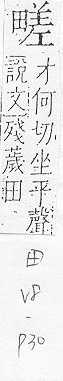 䴾
才何切坐平聲
說文殘薉田
田
V8
-
P30